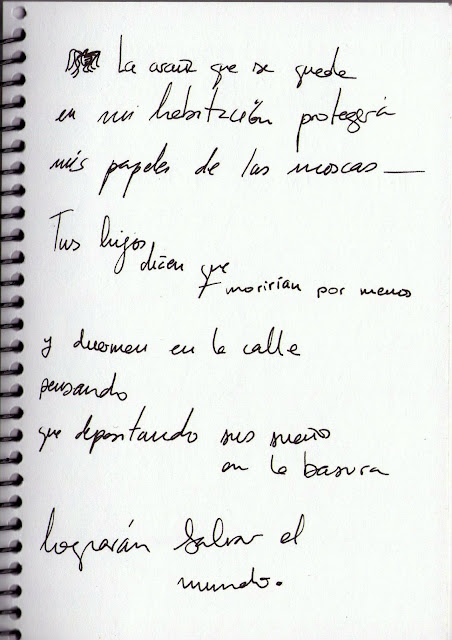 La araña que se quede
en mi habitación protegerá
mis papeles de las moscas
Tus hijos
dicen que
morirían por menos
y duermen en la calle
pensando
que depositando sus sueños
en la basura
lograrán salvar el
mundo.